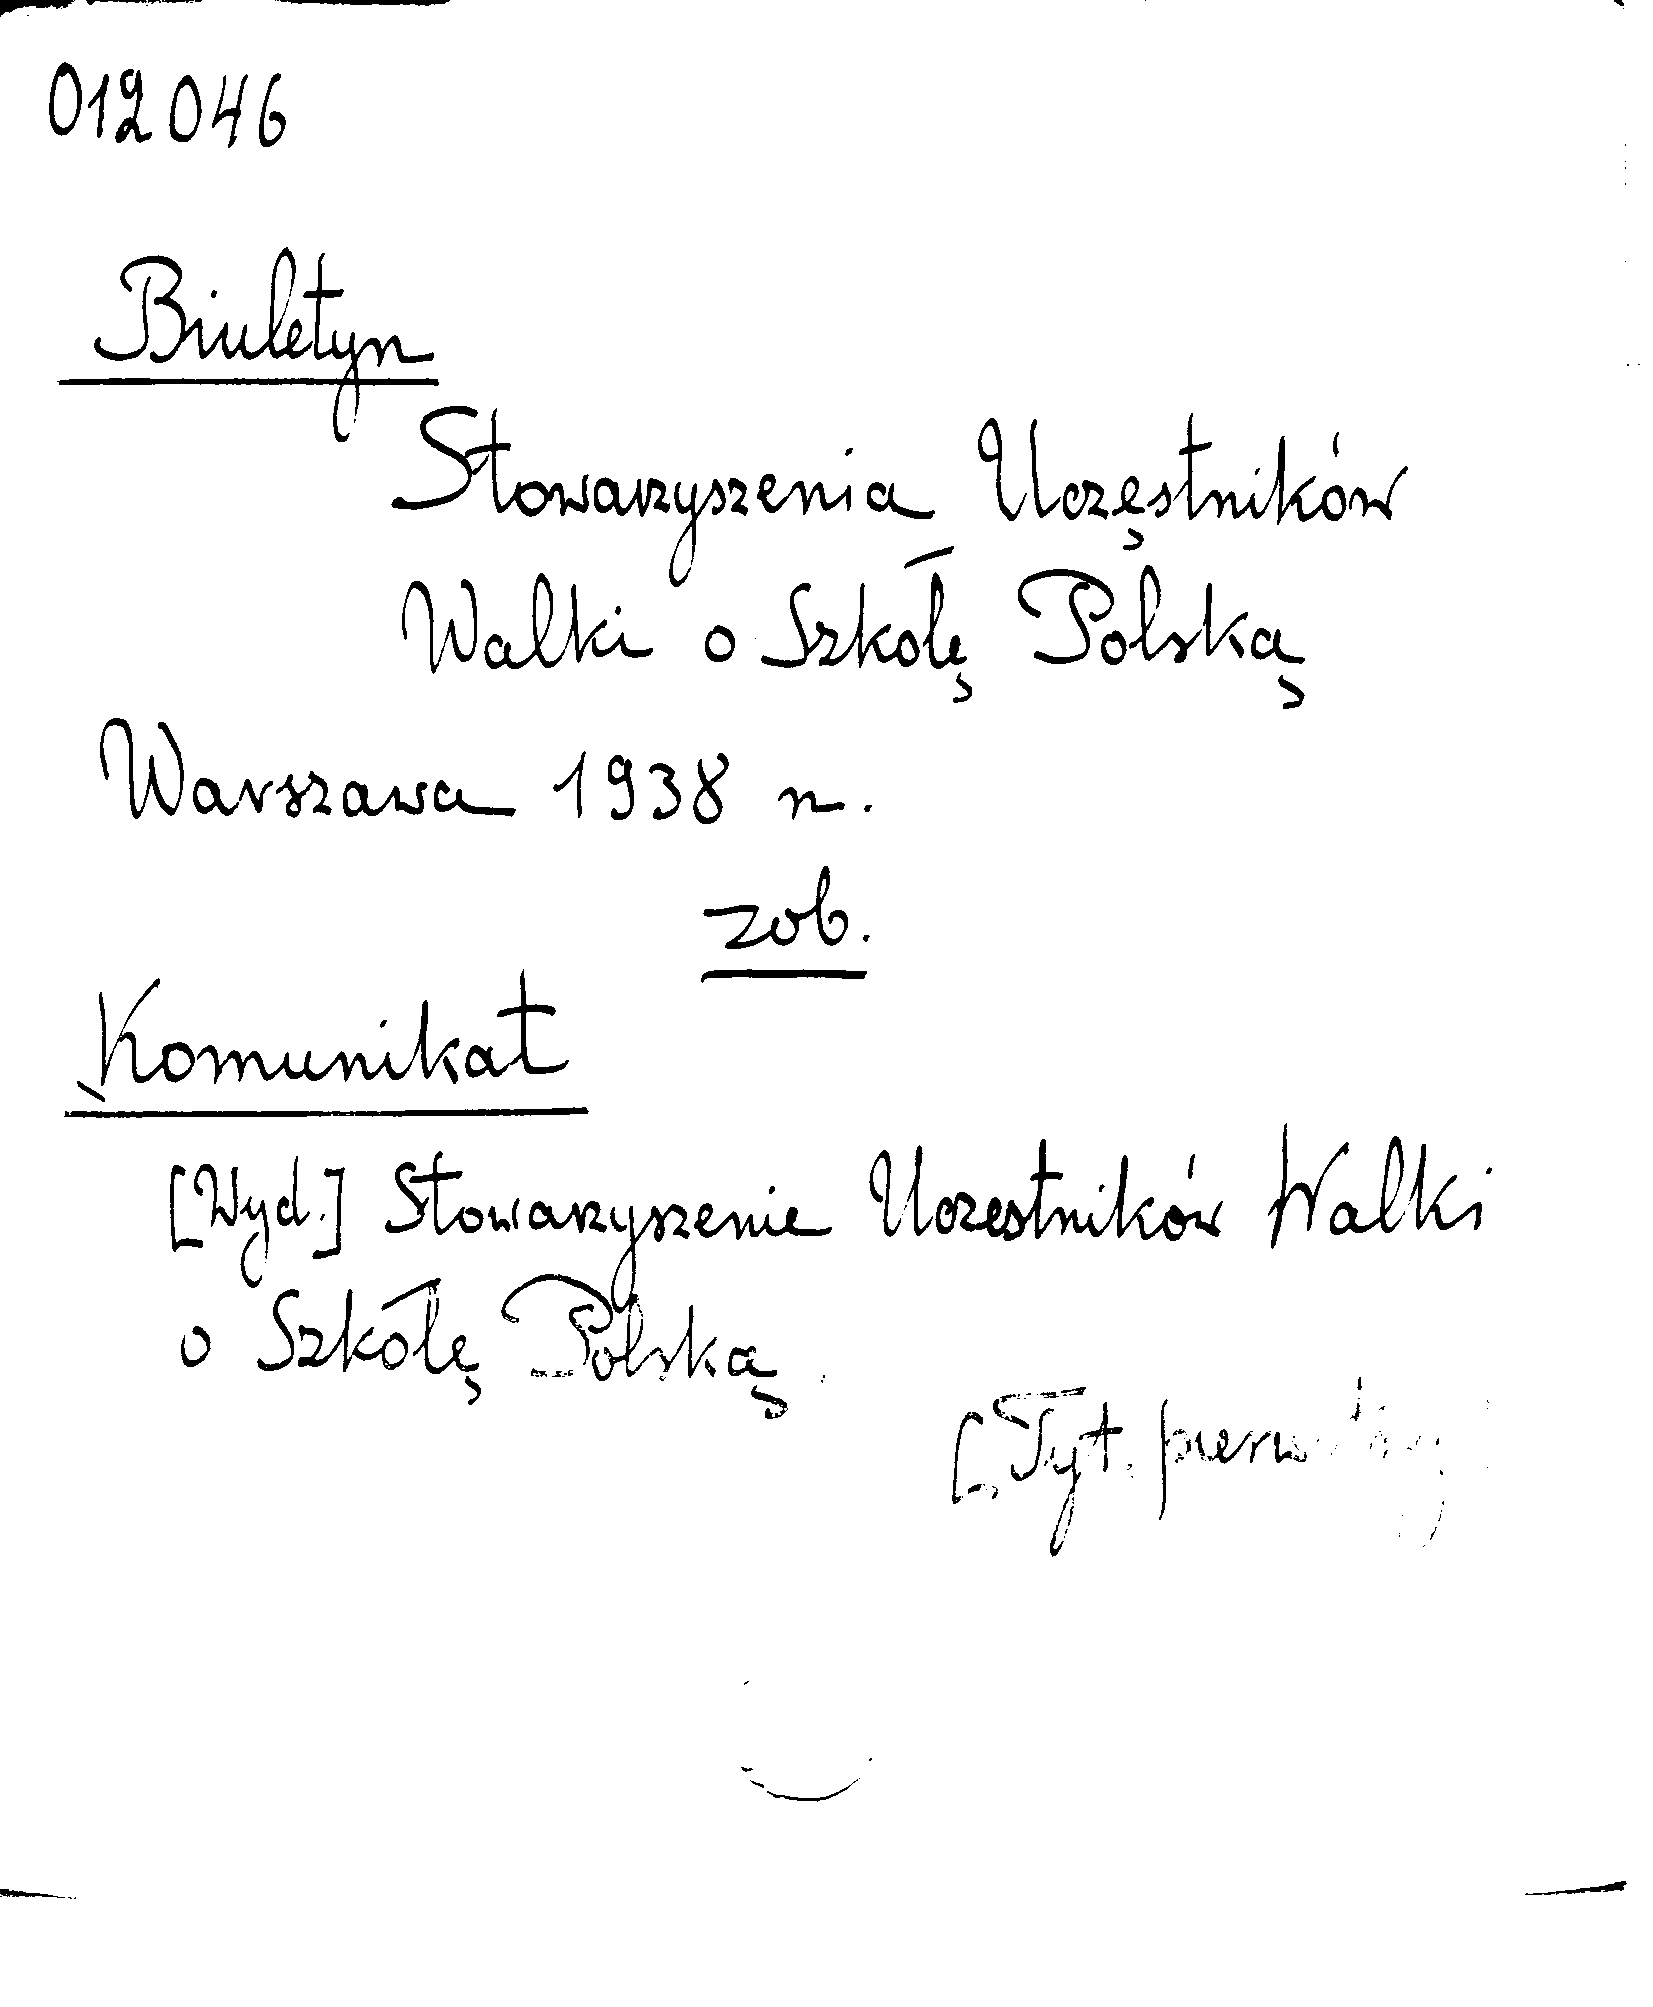 012046
Biuletyn
Stowarzyszenia Uczęstników
Walki o Szkołę Polską
Warszawa 1938 n.
zob.
Komunikat
[Wyd.] Stowarzyszenie Uczestników Walki
o Szkołę Polską
[Tyt.